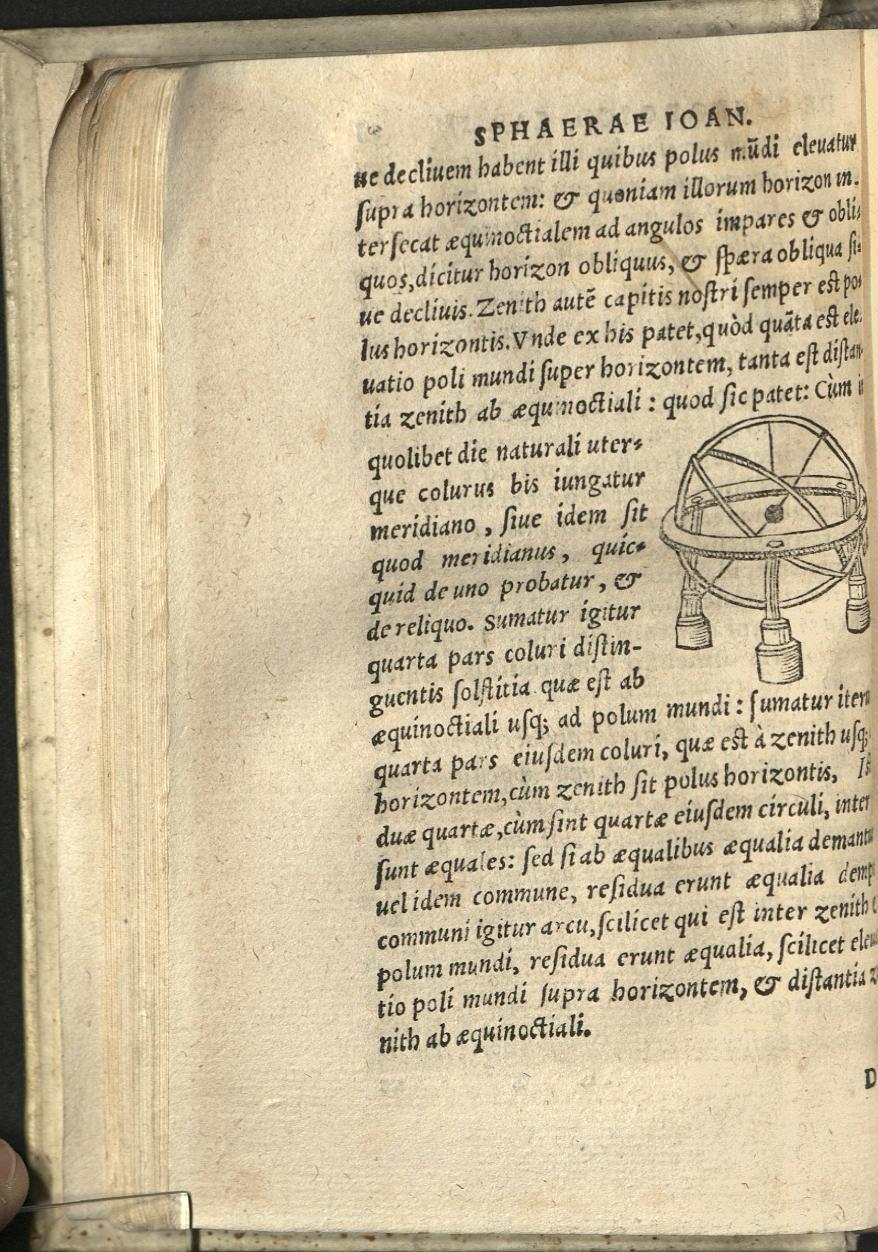 SPHAERAE IOAN.
ue decliuem habent illi quibus polus mūdi eleuatur
supra horizontem: & quoniam illorum horizon in-
tersecat æquinoctialem ad angulos impares & obli-
quos, dicitur horizon obliquus, & sphæra obliqua si-
ue decliuis. Zenith autē capitis nostri semper est po-
lus horizontis. Vnde ex his patet, quòd quāta est ele-
uatio poli mundi super horizontem, tanta est distan-
tia zenith ab æquinoctiali : quod sic patet: Cùm i
quolibet die naturali uter-
que colurus bis iungatur
meridiano , siue idem sit
quod meridianus , quic-
quid de uno probatur , &
de reliquo. Sumatur igitur
quarta pars coluri distin-
guentis solstitia quæ est ab
æquinoctiali usq; ad polum mundi : sumatur item
quarta pars eiusdem coluri, quæ est à zenith usq;
horizontem, cùm zenith sit polus horizontis,
duæ quartæ, cùm sint quartæ eiusdem circuli, inter
sunt æquales: sed si ab æqualibus æqualia demant
uel idem commune, residua erunt æqualia demp
communi igitur arcu, scilicet qui est inter zenith
polum mundi, residua erunt æqualia, scilicet eleu
tio poli mundi supra horizontem, & distantia z
nith ab æquinoctiali.
D